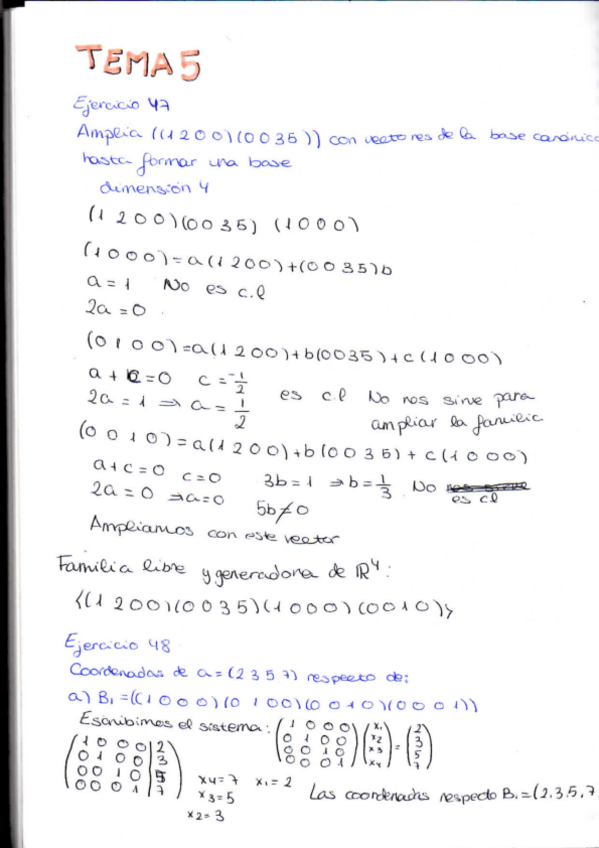 TEMA 5
Ejercicio 47
Amplia ((1 2 0 0)(0 0 3 5)) con vectores de la base canónica
hasta formar una base
dimensión 4
(1 2 0 0)(0 0 3 5) (1 0 0 0)
(1 0 0 0) = a(1 2 0 0)+(0 0 3 5)b
a = 1 No es c.l
2a = 0
(0 1 0 0)=a(1 2 0 0)+b(0 0 3 5)+c(1 0 0 0)
a + c = 0 c = -1/2
2a = 1 ⇒ a = 1/2 es c.l No nos sirve para
ampliar la familia
(0 0 1 0) = a(1 2 0 0)+b(0 0 3 5) + c(1 0 0 0)
a+c=0 c=0 3b=1 ⇒ b=1/3 No
2a = 0 ⇒ a=0 5b≠0 es cl
Ampliamos con este vector
Familia libre y generadora de ℝ⁴:
{(1 2 0 0)(0 0 3 5)(1 0 0 0)(0 0 1 0)}
Ejercicio 48
Coordenadas de a = (2 3 5 7) respecto de:
a) B₁ =((1 0 0 0)(0 1 0 0)(0 0 1 0)(0 0 0 1))
Escribimos el sistema: (1 0 0 0 (x₁ (2
0 1 0 0 x₂ = 3
0 0 1 0 x₃ 5
0 0 0 1) x₄) 7)
(1 0 0 0 | 2
0 1 0 0 | 3
0 0 1 0 | 5
0 0 0 1 | 7)
x₄ = 7 x₁ = 2
x₃ = 5
x₂ = 3
Las coordenadas respecto B₁ = (2,3,5,7